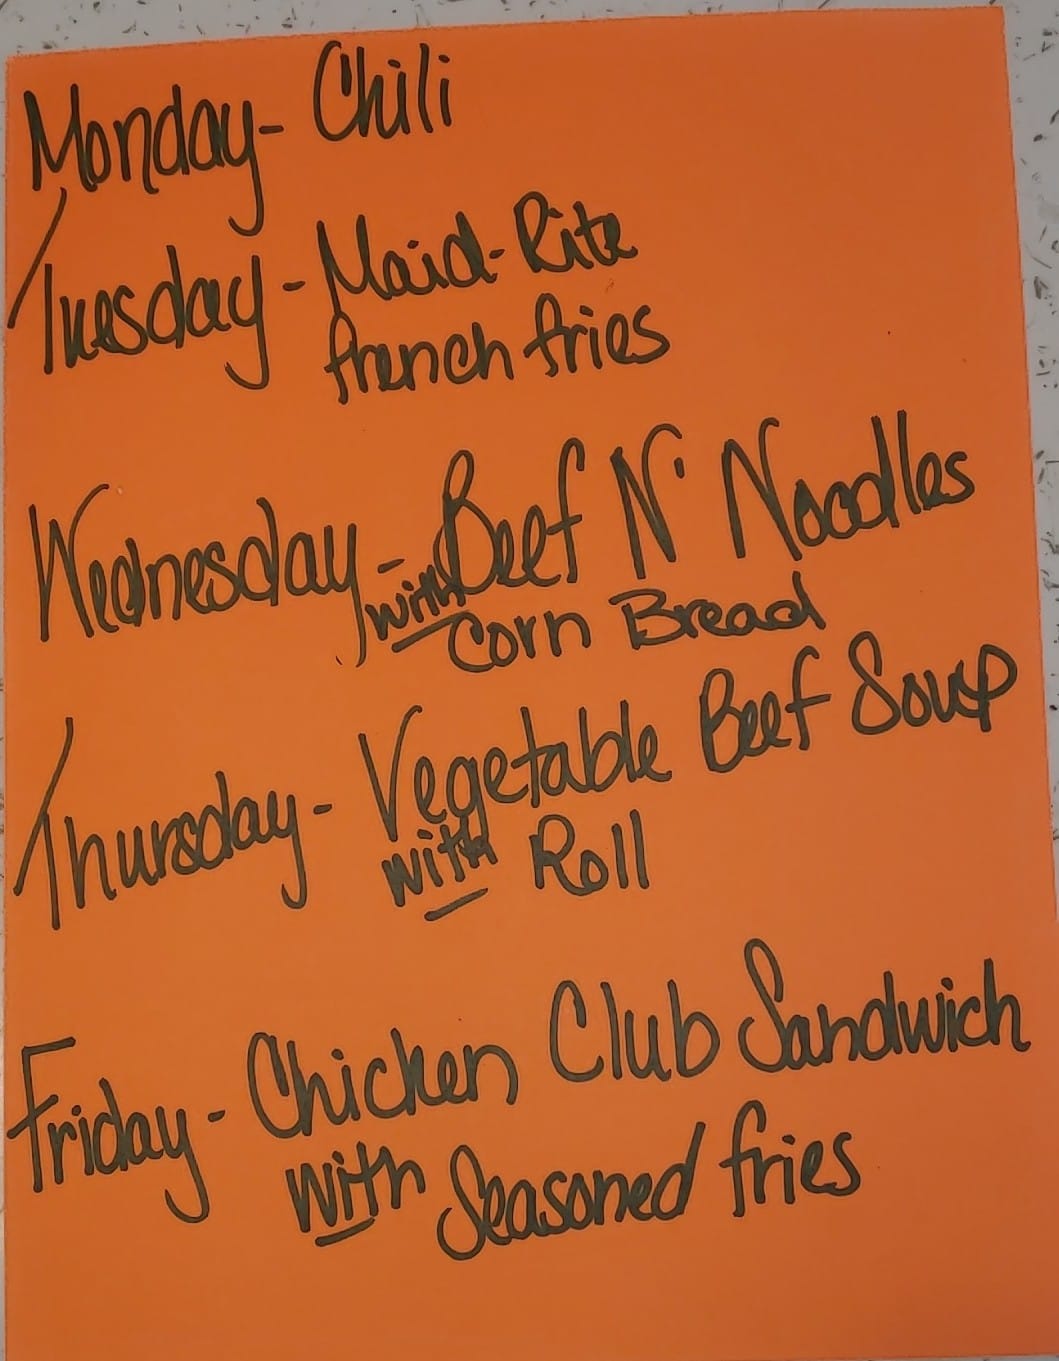 Monday- Chili
Tuesday- Maid-Rite
french fries
Wednesday- Beef N' Noodles
with Corn Bread
Thursday- Vegetable Beef Soup
with Roll
Friday- Chicken Club Sandwich
with Seasoned fries